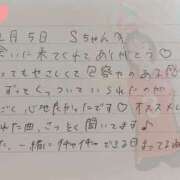 月5日 Sちゃんへ
会いに来てくれてありがとう♡
ってもやさしくて包容力のある
ずっとくっついていられたのが
ごく心地よかったです♡ オススメし
れた曲、さっそく聞いてます♪
た、一緒にイチャイチャできる日